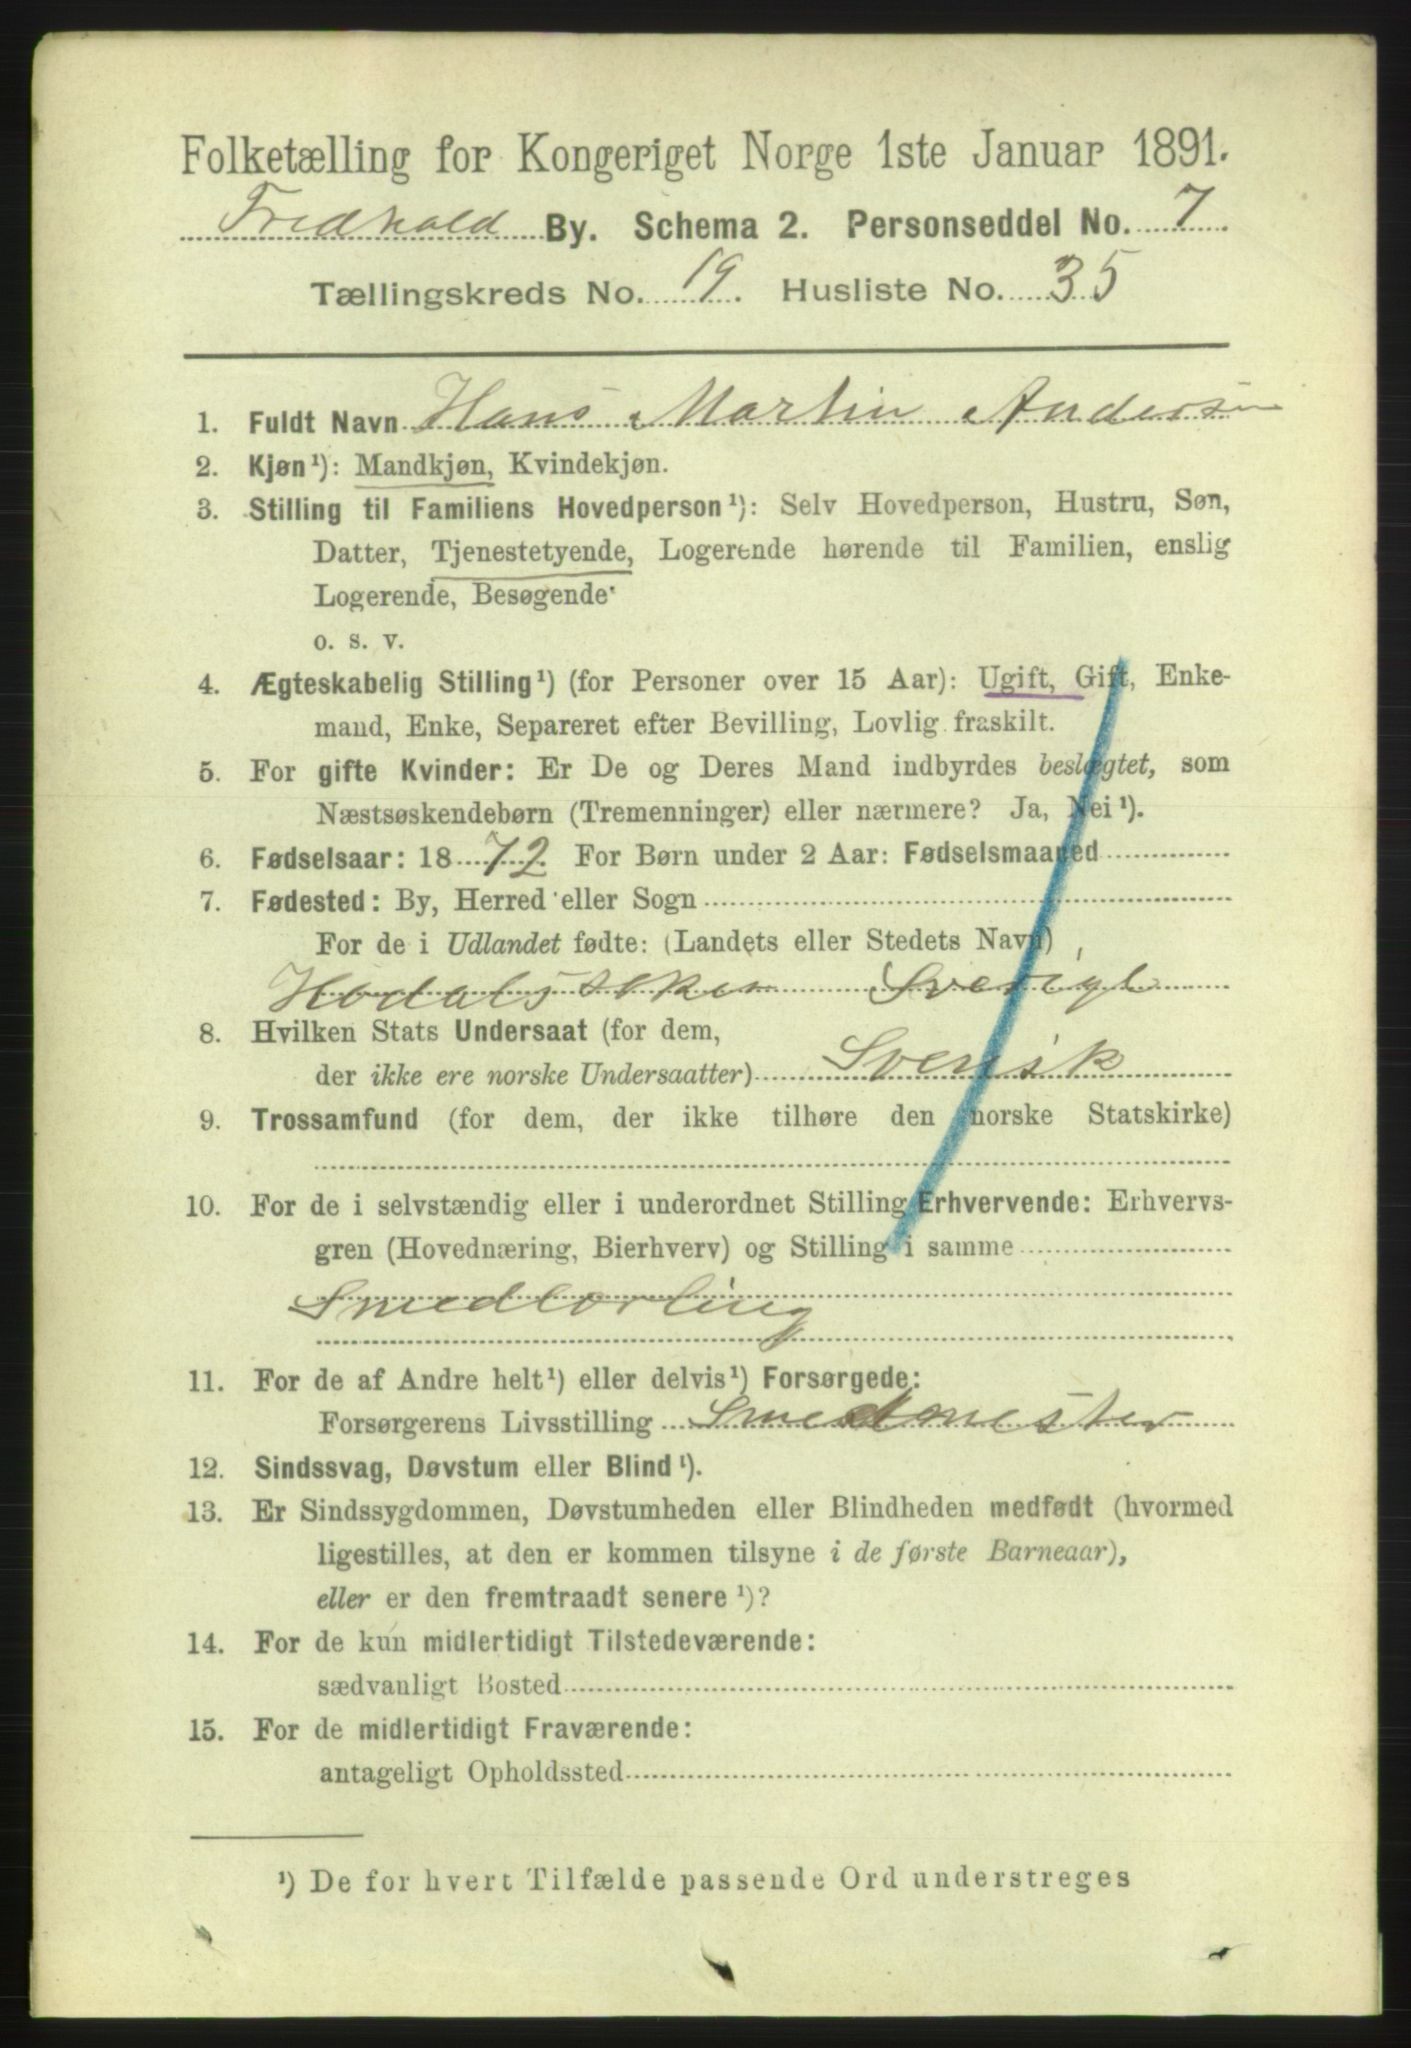 Folketælling for Kongeriget Norge 1ste Januar 1891.
Fredhald By. Schema 2. Personseddel No. 7
Tællingskreds No. 19. Husliste No. 35
1. Fuldt Navn Hans Martin Andersen
2. Kjøn¹): Mandkjøn, Kvindekjøn.
3. Stilling til Familiens Hovedperson¹): Selv Hovedperson, Hustru, Søn,
Datter, Tjenestetyende, Logerende hørende til Familien, enslig
Logerende, Besøgende
o. s. v.
4. Ægteskabelig Stilling¹) (for Personer over 15 Aar): Ugift, Gift, Enke-
mand, Enke, Separeret efter Bevilling, Lovlig fraskilt.
5. For gifte Kvinder: Er De og Deres Mand indbyrdes beslægtet, som
Næstsøskendebørn (Tremenninger) eller nærmere? Ja, Nei¹).
6. Fødselsaar: 1872. For Børn under 2 Aar: Fødselsmaaned
7. Fødested: By, Herred eller Sogn
For de i Udlandet fødte: (Landets eller Stedets Navn)
Sverige
8. Hvilken Stats Undersaat (for dem,
der ikke ere norske Undersaatter) Svensk
9. Trossamfund (for dem, der ikke tilhøre den norske Statskirke)
10. For de i selvstændig eller i underordnet Stilling Erhvervende: Erhvervs-
gren (Hovednæring, Bierhverv) og Stilling i samme
Smedlærling
11. For de af Andre helt¹) eller delvis¹) Forsørgede:
Forsørgerens Livsstilling Smedmester
12. Sindssvag, Døvstum eller Blind¹).
13. Er Sindssygdommen, Døvstumheden eller Blindheden medfødt (hvormed
ligestilles, at den er kommen tilsyne i de første Barneaar),
eller er den fremtraadt senere¹)?
14. For de kun midlertidigt Tilstedeværende:
sædvanligt Bosted
15. For de midlertidigt Fraværende:
antageligt Opholdssted
¹) De for hvert Tilfælde passende Ord understreges